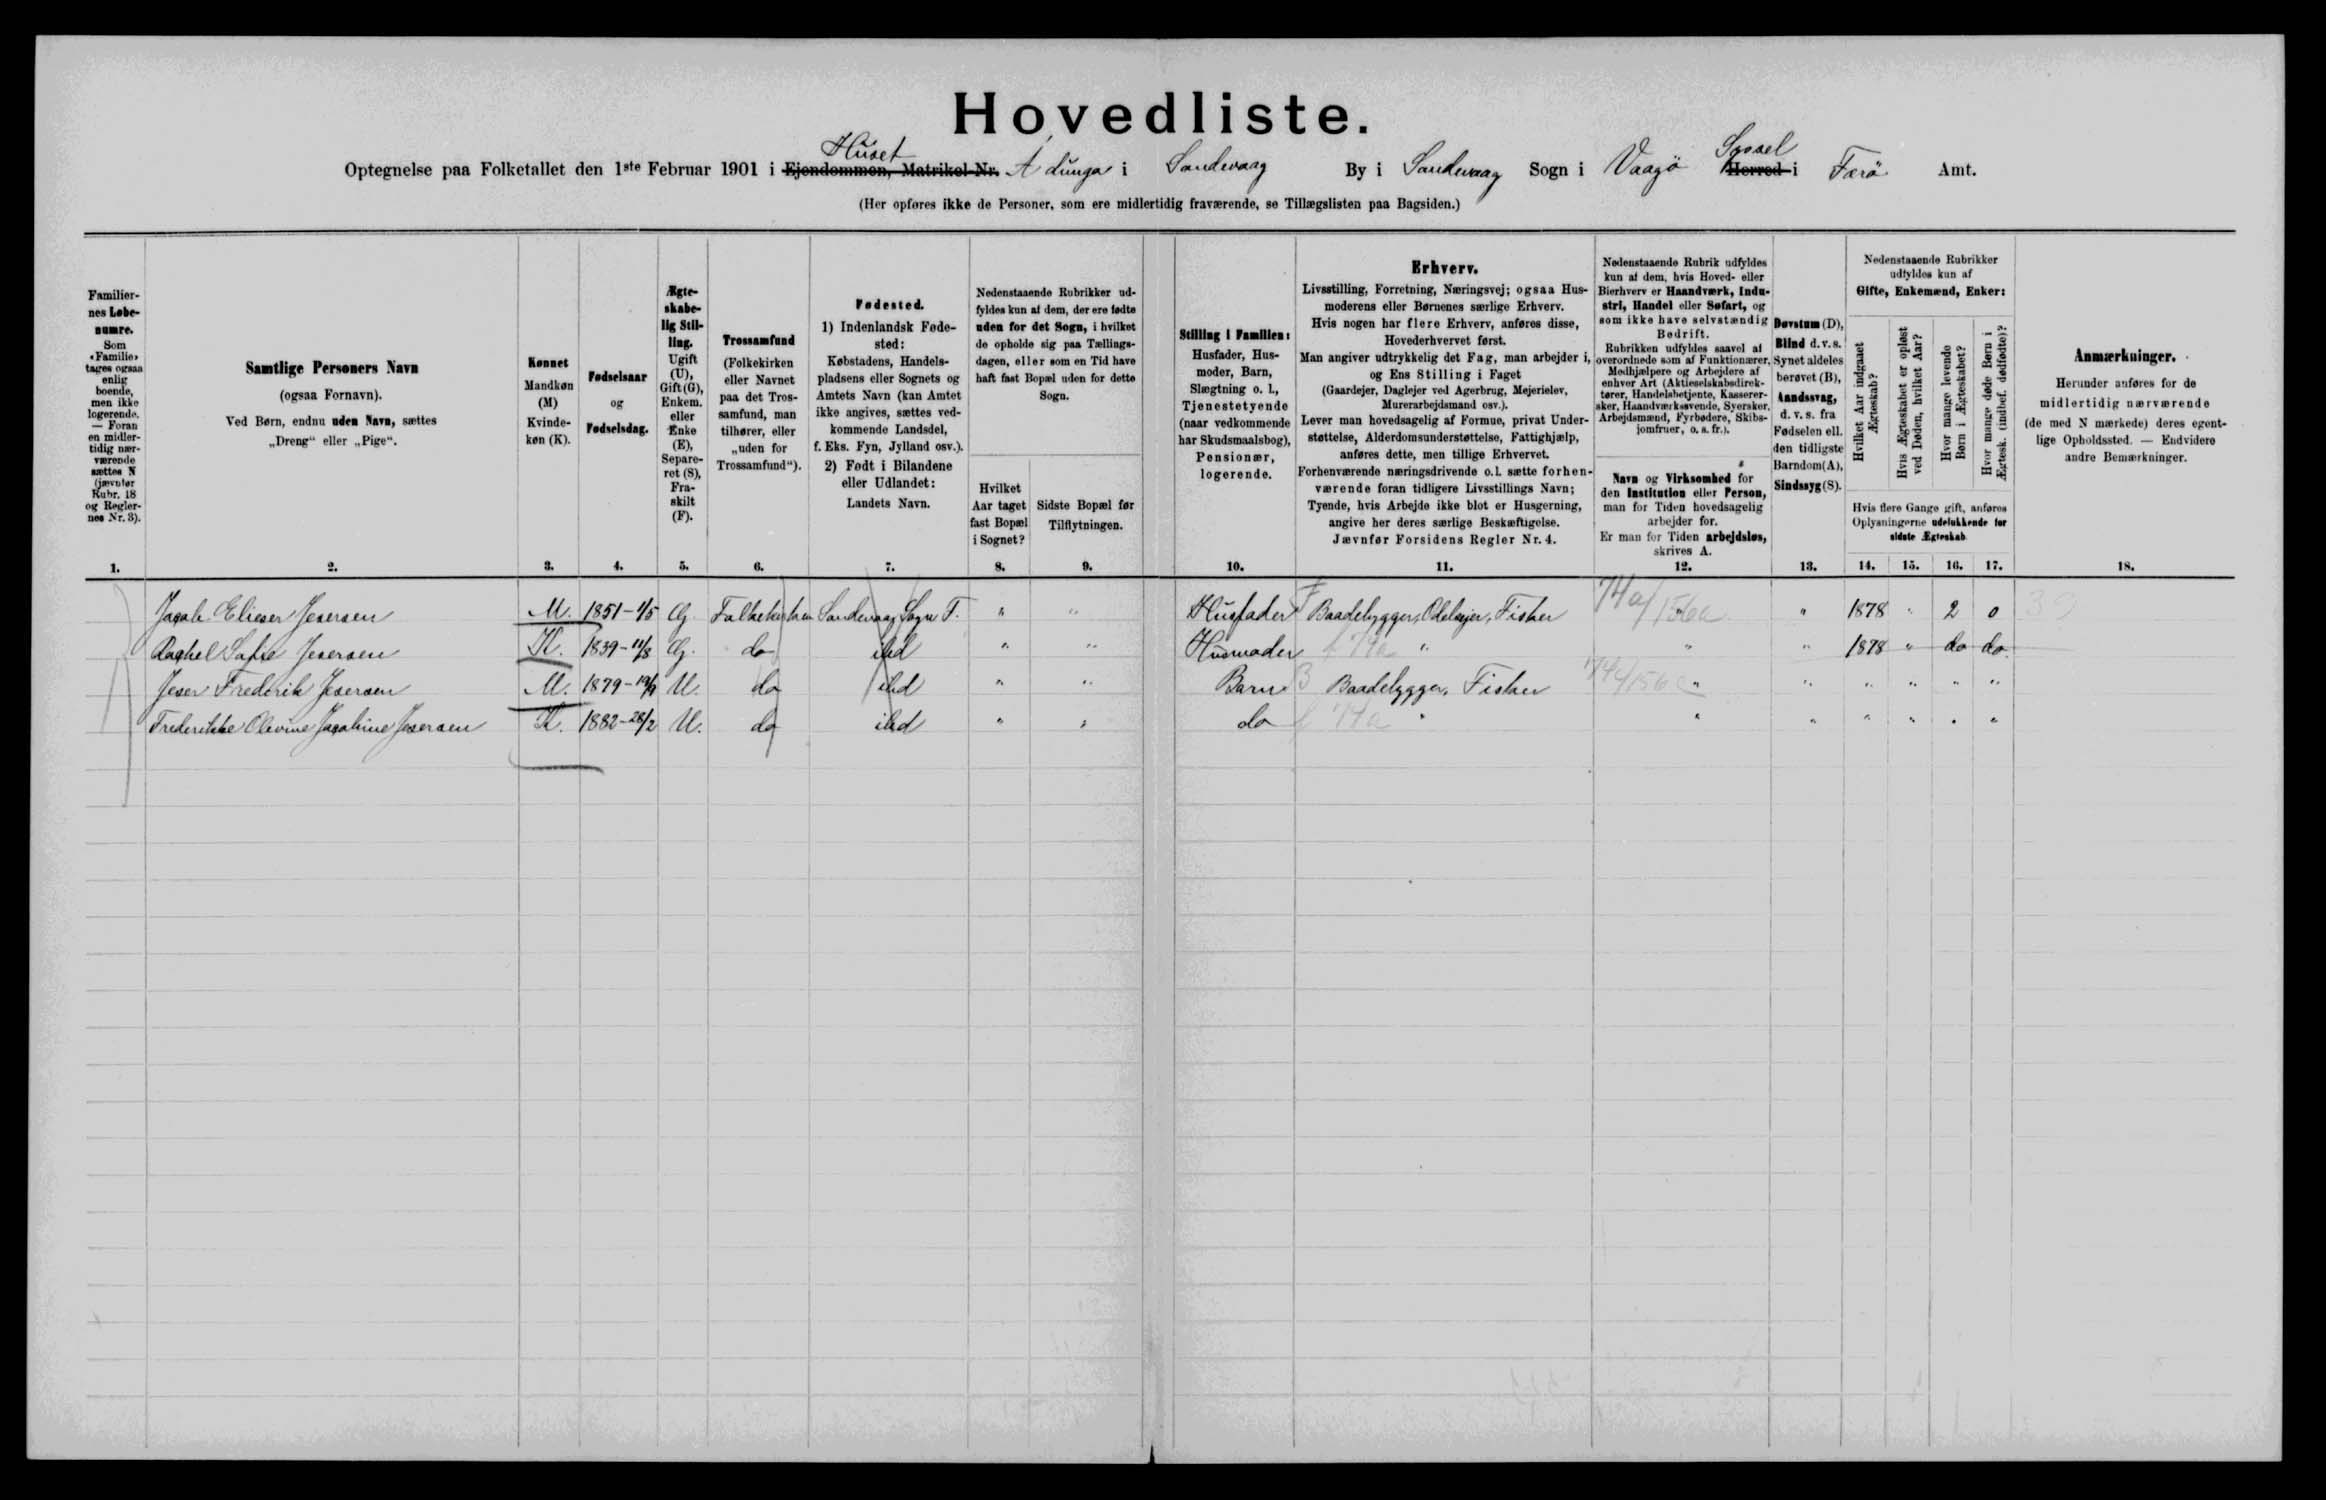 Hovedliste.
Optegnelse paa Folketallet den 1ste Februar 1901 i Ejendommen, Matrikel-Nr. Huset Á dunga i Sandevaag By i Sandevaag Sogn i Vaagø Herred Syssel i Færø Amt.
(Her opføres ikke de Personer, som ere midlertidig fraværende, se Tillægslisten paa Bagsiden.)
Familiernes Løbenumre.
Som «Familie» tages ogsaa enlig boende, men ikke logerende. — Foran en midlertidig nærværende sættes N (jævnfør Rubr. 18 og Reglernes Nr. 3).
Samtlige Personers Navn
(ogsaa Fornavn).
Ved Børn, endnu uden Navn, sættes
„Dreng“ eller „Pige“.
Kønnet
Mandkøn (M)
Kvindekøn (K).
Fødselsaar
og
Fødselsdag.
Ægteskabelig Stilling.
Ugift (U), Gift (G), Enkem. eller Enke (E), Separeret (S), Fraskilt (F).
Trossamfund
(Folkekirken eller Navnet paa det Trossamfund, man tilhører, eller „uden for Trossamfund“).
Fødested.
1) Indenlandsk Fødested:
Købstadens, Handelspladsens eller Sognets og Amtets Navn (kan Amtet ikke angives, sættes vedkommende Landsdel, f. Eks. Fyn, Jylland osv.).
2) Født i Bilandene eller Udlandet:
Landets Navn.
Nedenstaaende Rubrikker udfyldes kun af dem, der ere fødte uden for det Sogn, i hvilket de opholde sig paa Tællingsdagen, eller som en Tid have haft fast Bopæl uden for dette Sogn.
Hvilket Aar taget fast Bopæl i Sognet?
Sidste Bopæl før Tilflytningen.
Stilling i Familien:
Husfader, Husmoder, Barn, Slægtning o. l., Tjenestetyende (naar vedkommende har Skudsmaalsbog), Pensionær, logerende.
Erhverv.
Livsstilling, Forretning, Næringsvej; ogsaa Husmoderens eller Børnenes særlige Erhverv.
Hvis nogen har flere Erhverv, anføres disse, Hovederhvervet først.
Man angiver udtrykkelig det Fag, man arbejder i, og Ens Stilling i Faget
(Gaardejer, Daglejer ved Agerbrug, Mejerielev, Murerarbejdsmand osv.).
Lever man hovedsagelig af Formue, privat Understøttelse, Alderdomsunderstøttelse, Fattighjælp, anføres dette, men tillige Erhvervet.
Forhenværende næringsdrivende o.l. sætte forhenværende foran tidligere Livsstillings Navn;
Tyende, hvis Arbejde ikke blot er Husgerning, angive her deres særlige Beskæftigelse.
Jævnfør Forsidens Regler Nr. 4.
Nedenstaaende Rubrik udfyldes kun af dem, hvis Hoved- eller Bierhverv er Haandværk, Industri, Handel eller Søfart, og som ikke have selvstændig Bedrift.
Rubrikken udfyldes saavel af overordnede som af Funktionærer, Medhjælpere og Arbejdere af enhver Art (Aktieselskabsdirektører, Handelsbetjente, Kasserersker, Haandværkssvende, Syersker, Arbejdsmænd, Fyrbødere, Skibsjomfruer, o. s. fr.).
Navn og Virksomhed for den Institution eller Person, man for Tiden hovedsagelig arbejder for.
Er man for Tiden arbejdsløs, skrives A.
Døvstum (D), Blind d. v. s. Synet aldeles berøvet (B), Aandssvag, d. v. s. fra Fødselen ell. den tidligste Barndom (A), Sindssyg (S).
Nedenstaaende Rubrikker udfyldes kun af
Gifte, Enkemænd, Enker:
Hvilket Aar indgaaet Ægteskab?
Hvis Ægteskabet er opløst ved Døden, hvilket Aar?
Hvor mange levende Børn i Ægteskabet?
Hvor mange døde Børn i Ægtesk. (indbef. dødfødte)?
Hvis flere Gange gift, anføres Oplysningerne udelukkende for sidste Ægteskab
Anmærkninger.
Herunder anføres for de midlertidig nærværende (de med N mærkede) deres egentlige Opholdssted. — Endvidere andre Bemærkninger.
1. 2. 3. 4. 5. 6. 7. 8. 9. 10. 11. 12. 13. 14. 15. 16. 17. 18.
Jacob Elieser Jesersen M. 1851-1/5 G. Folkekirken Sandevaag Sogn F. " " Husfader F Baadebygger, Odelsejer, Fisker 74a/156a " " 1878 " 2 0
Rachel Sofie Jesersen K. 1839-11/8 G. do ibd " " Husmoder f 74a " " " 1878 " do do
Jeser Frederik Jesersen M. 1879-19/9 U. do ibd " " Barn B Baadebygger, Fisker 74c/156c " " " " " "
Frederikke Olevine Jacobine Jesersen K. 1882-28/2 U. do ibd " " do f 74a " " " " " " "